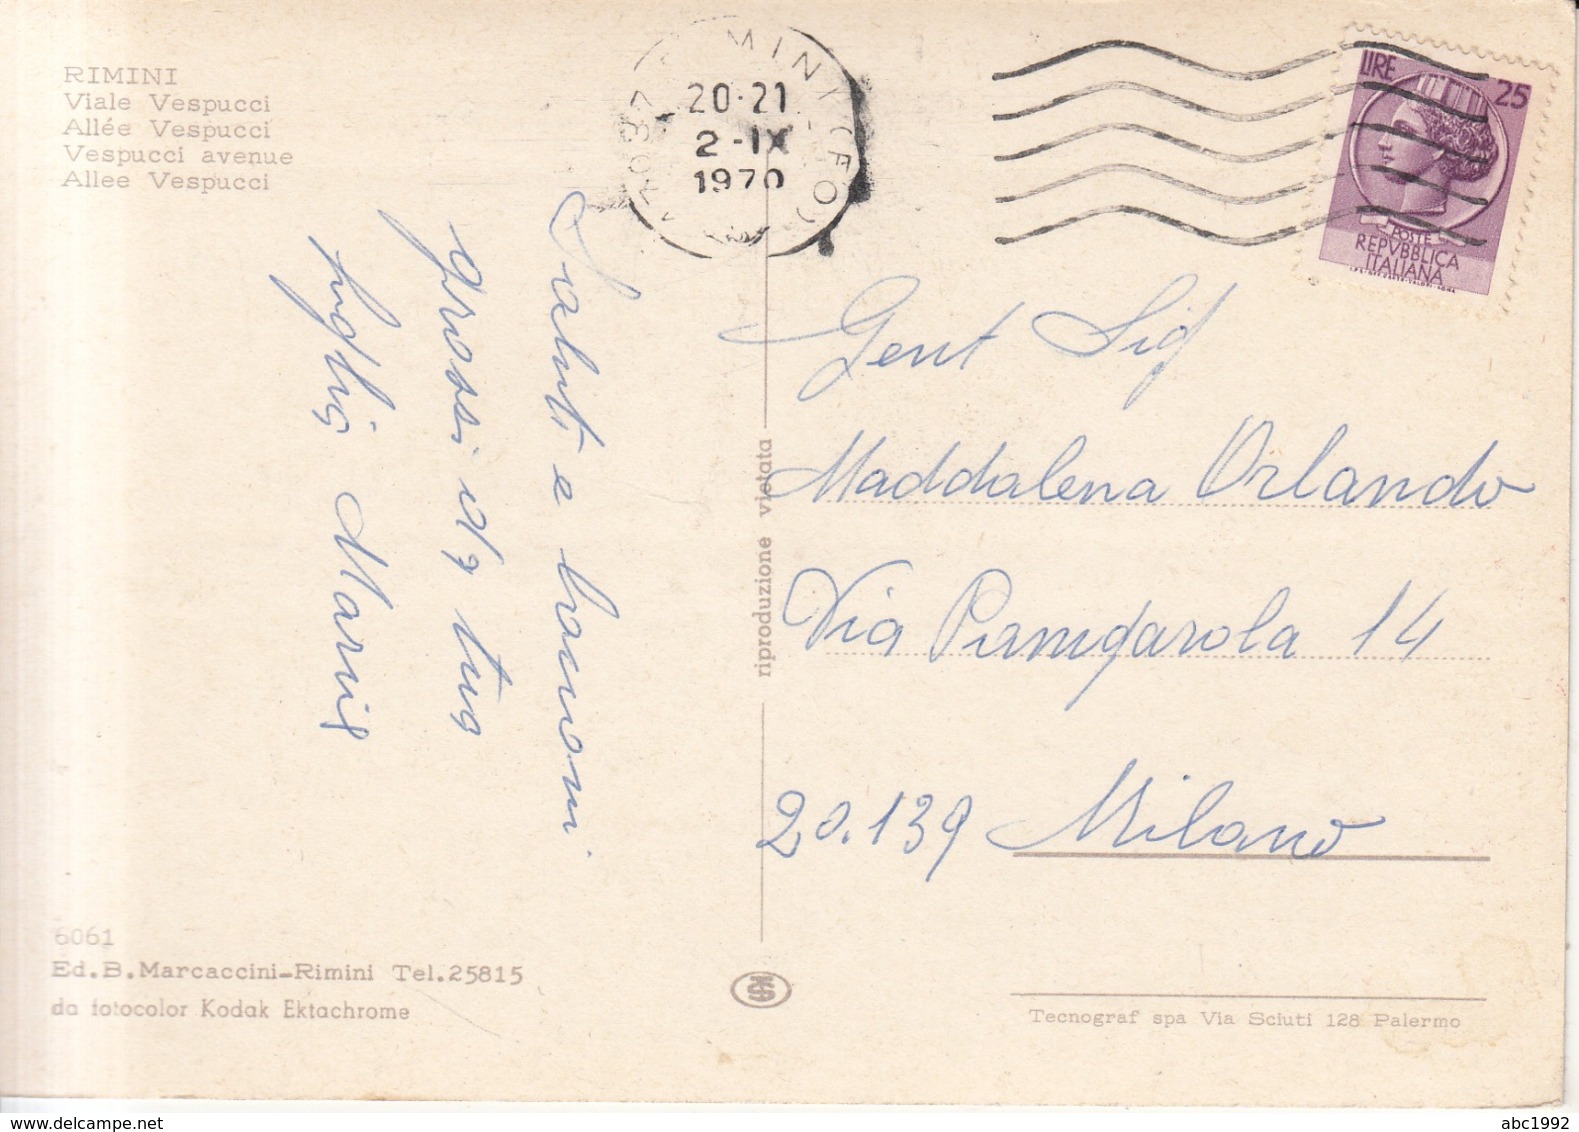 RIMINI
Viale Vespucci
Allée Vespucci
Vespucci avenue
Allee Vespucci
20-21
2-IX
1970
LIRE 25
POSTE
REPVBBLICA
ITALIANA
Saluti e bacioni
grossi da tua
figlia Maria
Gent Sig
Maddalena Orlando
Via Pamgarola 14
20.139 Milano
riproduzione vietata
6061
Ed.B.Marcaccini-Rimini Tel.25815
da fotocolor Kodak Ektachrome
KS
Tecnograf spa Via Sciuti 128 Palermo
abc1992